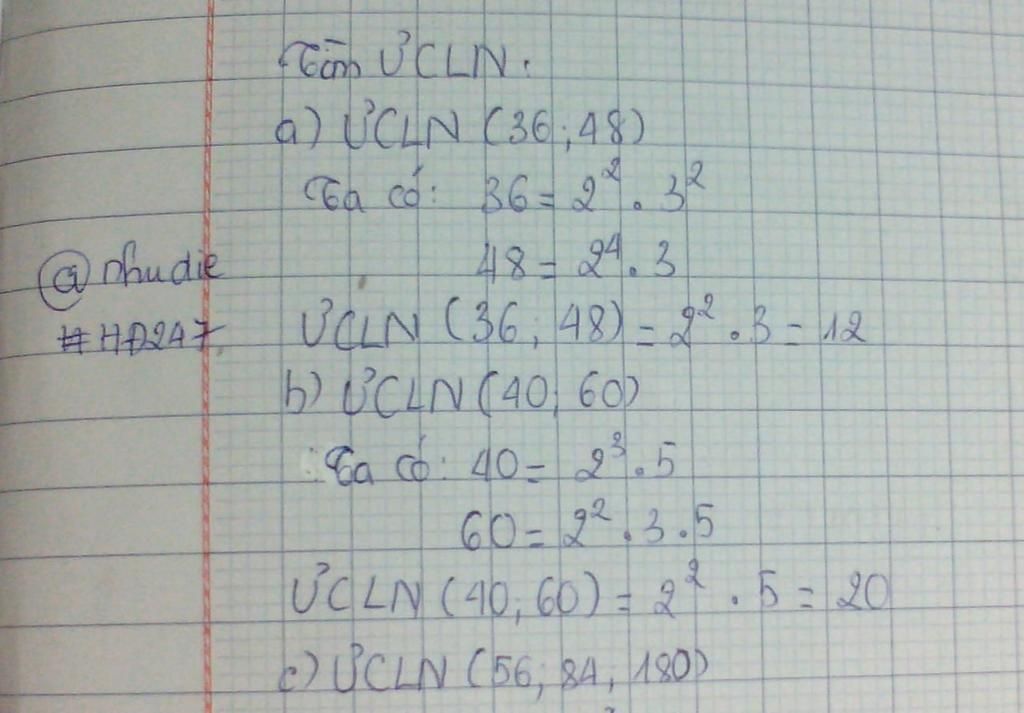 Tìm ƯCLN.
a) ƯCLN (36; 48)
Ta có: 36 = 2² . 3²
48 = 2⁴ . 3
@nhudie
#HĐ247
ƯCLN (36; 48) = 2² . 3 = 12
b) ƯCLN (40; 60)
Ta có: 40 = 2³ . 5
60 = 2² . 3 . 5
ƯCLN (40; 60) = 2² . 5 = 20
c) ƯCLN (56; 84; 180)